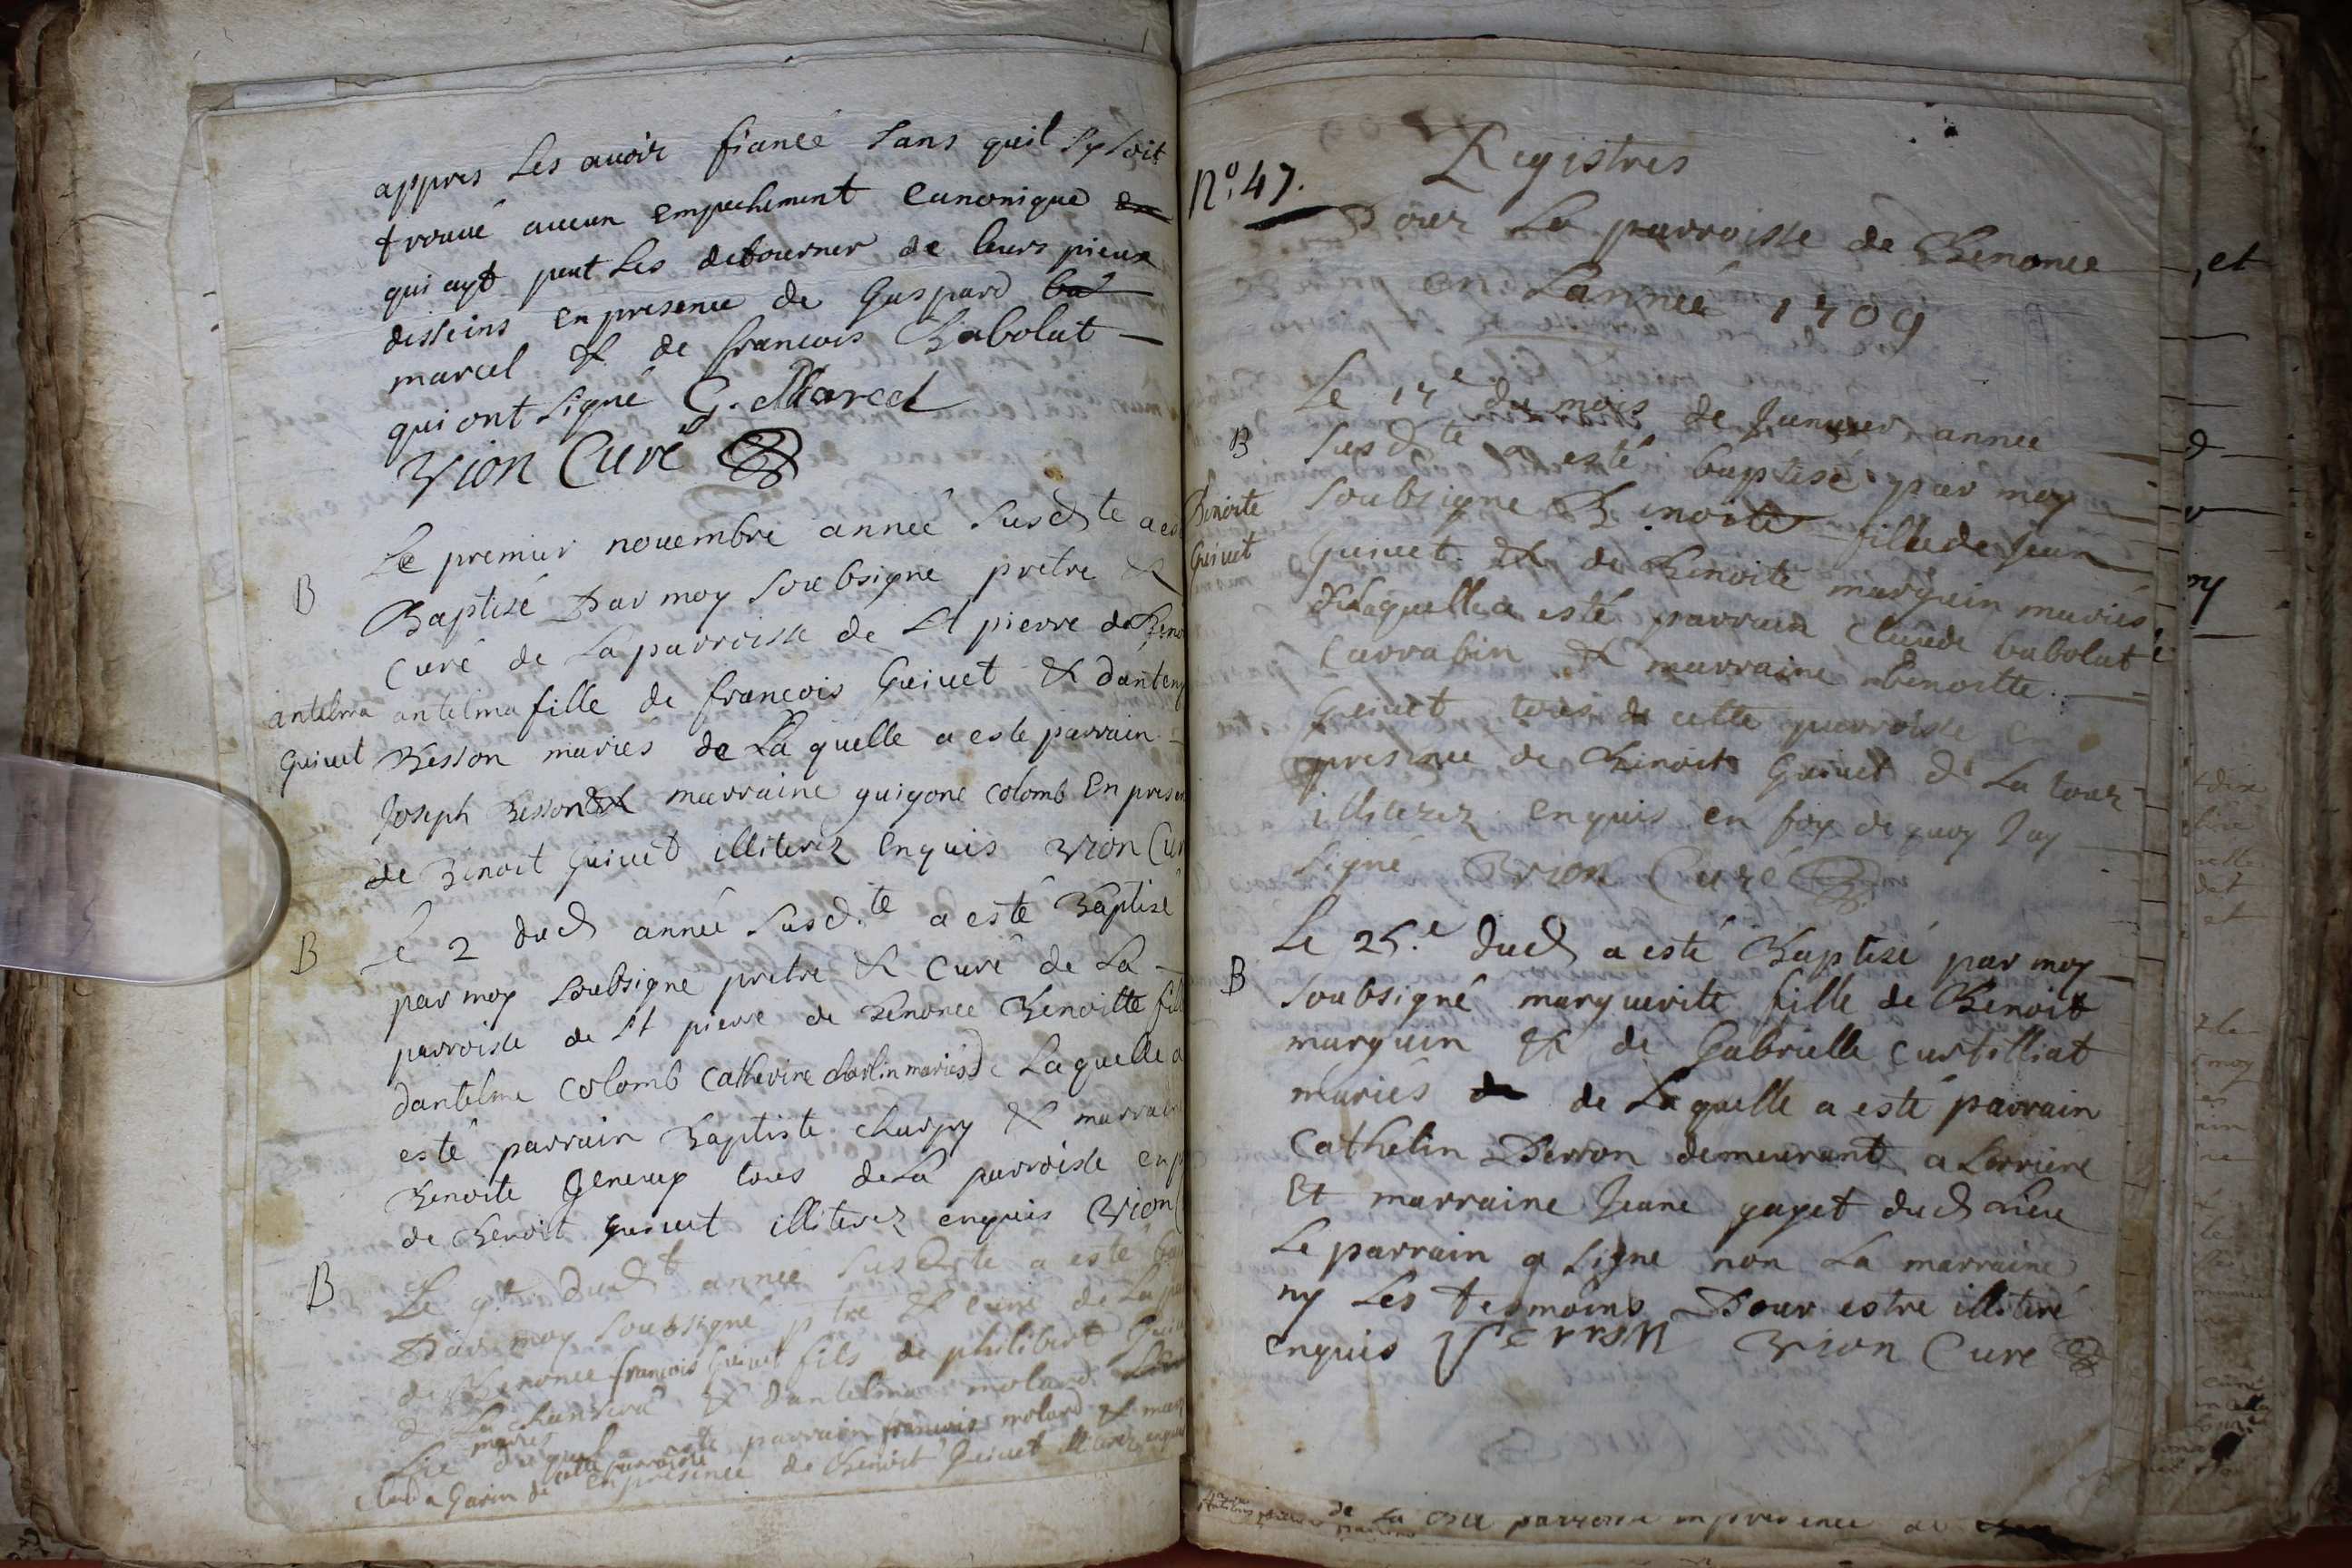 appres Les avoir fiancé sans quil sy soit
trouué aucun empechement canonique en
qui ayt peut Les detourner de leurs pieux
desseins en presence de Gaspard bab
marcel & de francois Babolat
qui ont signé G. Marcel
Brion Curé
Le premier nouembre anneé Susd.te a est
B
Baptisé Par moy soubsigné prètre &
Curé de La parroisse de St pierre de Beno
antelma antelma fille de francois Guiuet & dantem
Guiuet Besson mariés de La quelle a este parrain
Joseph Besson & marraine guigone colomb En presen
de Benoit Guiuet illiterez Enquis Brion Cur
B Le 2 dud anneé Susd.te a esté Baptisé
par moy soubsigné pretre & Curé de La
parroisse de St pierre de Benonce Benoitte fill
dantelme Colomb Catherine charlin mariés de Laquelle a
esté parrain Baptiste charpy & marrain
Benoite Geneuay tous de La parroisse en p
de Benoit Guiuet illiterez enquis Brion
B Le 9.e dud annee Susd.te a esté bap
Par moy soubsigné ptre & curé de La par
de Benonce francois Guiuet fils de philibert Guiu
& dantelma molard
mariés
duquel a esté parrain francois molard & marr
Clauda Garin de cette parroisse en presence de Benoit Guiuet illiterez enquis
Registres
N.o 47.
Pour La parroisse de Benonce
en Lanneé 1709
Le 17e du mois de Januier annee
B Susd.te a esté baptisé par moy
Benoite soubsigne Benoite fille de Jean
Guiuet Guiuet & de Benoite marguin mariés
de Laquelle a esté parrain Claude babolat
Carrabin & marraine Benoitte
Guiuet tous de cette parroisse en
presence de Benoit Guiuet de La tour
illiterez enquis en foy de quoy Jay
signé Brion Curé
Le 25.e dud a esté Baptisé par moy
B soubsigné marguerite fille de Benoit
marguin & de Gabrielle Castilliat
mariés de de Laquelle a esté parrain
Cathelin Perron demeurant a Lorriere
Et marraine Jeane gayet dud Lieu
Le parrain a signe non La marraine
ny Les tesmoins Pour estre illiteré
enquis Perron Brion Curé
de La dite parroisse en presence de